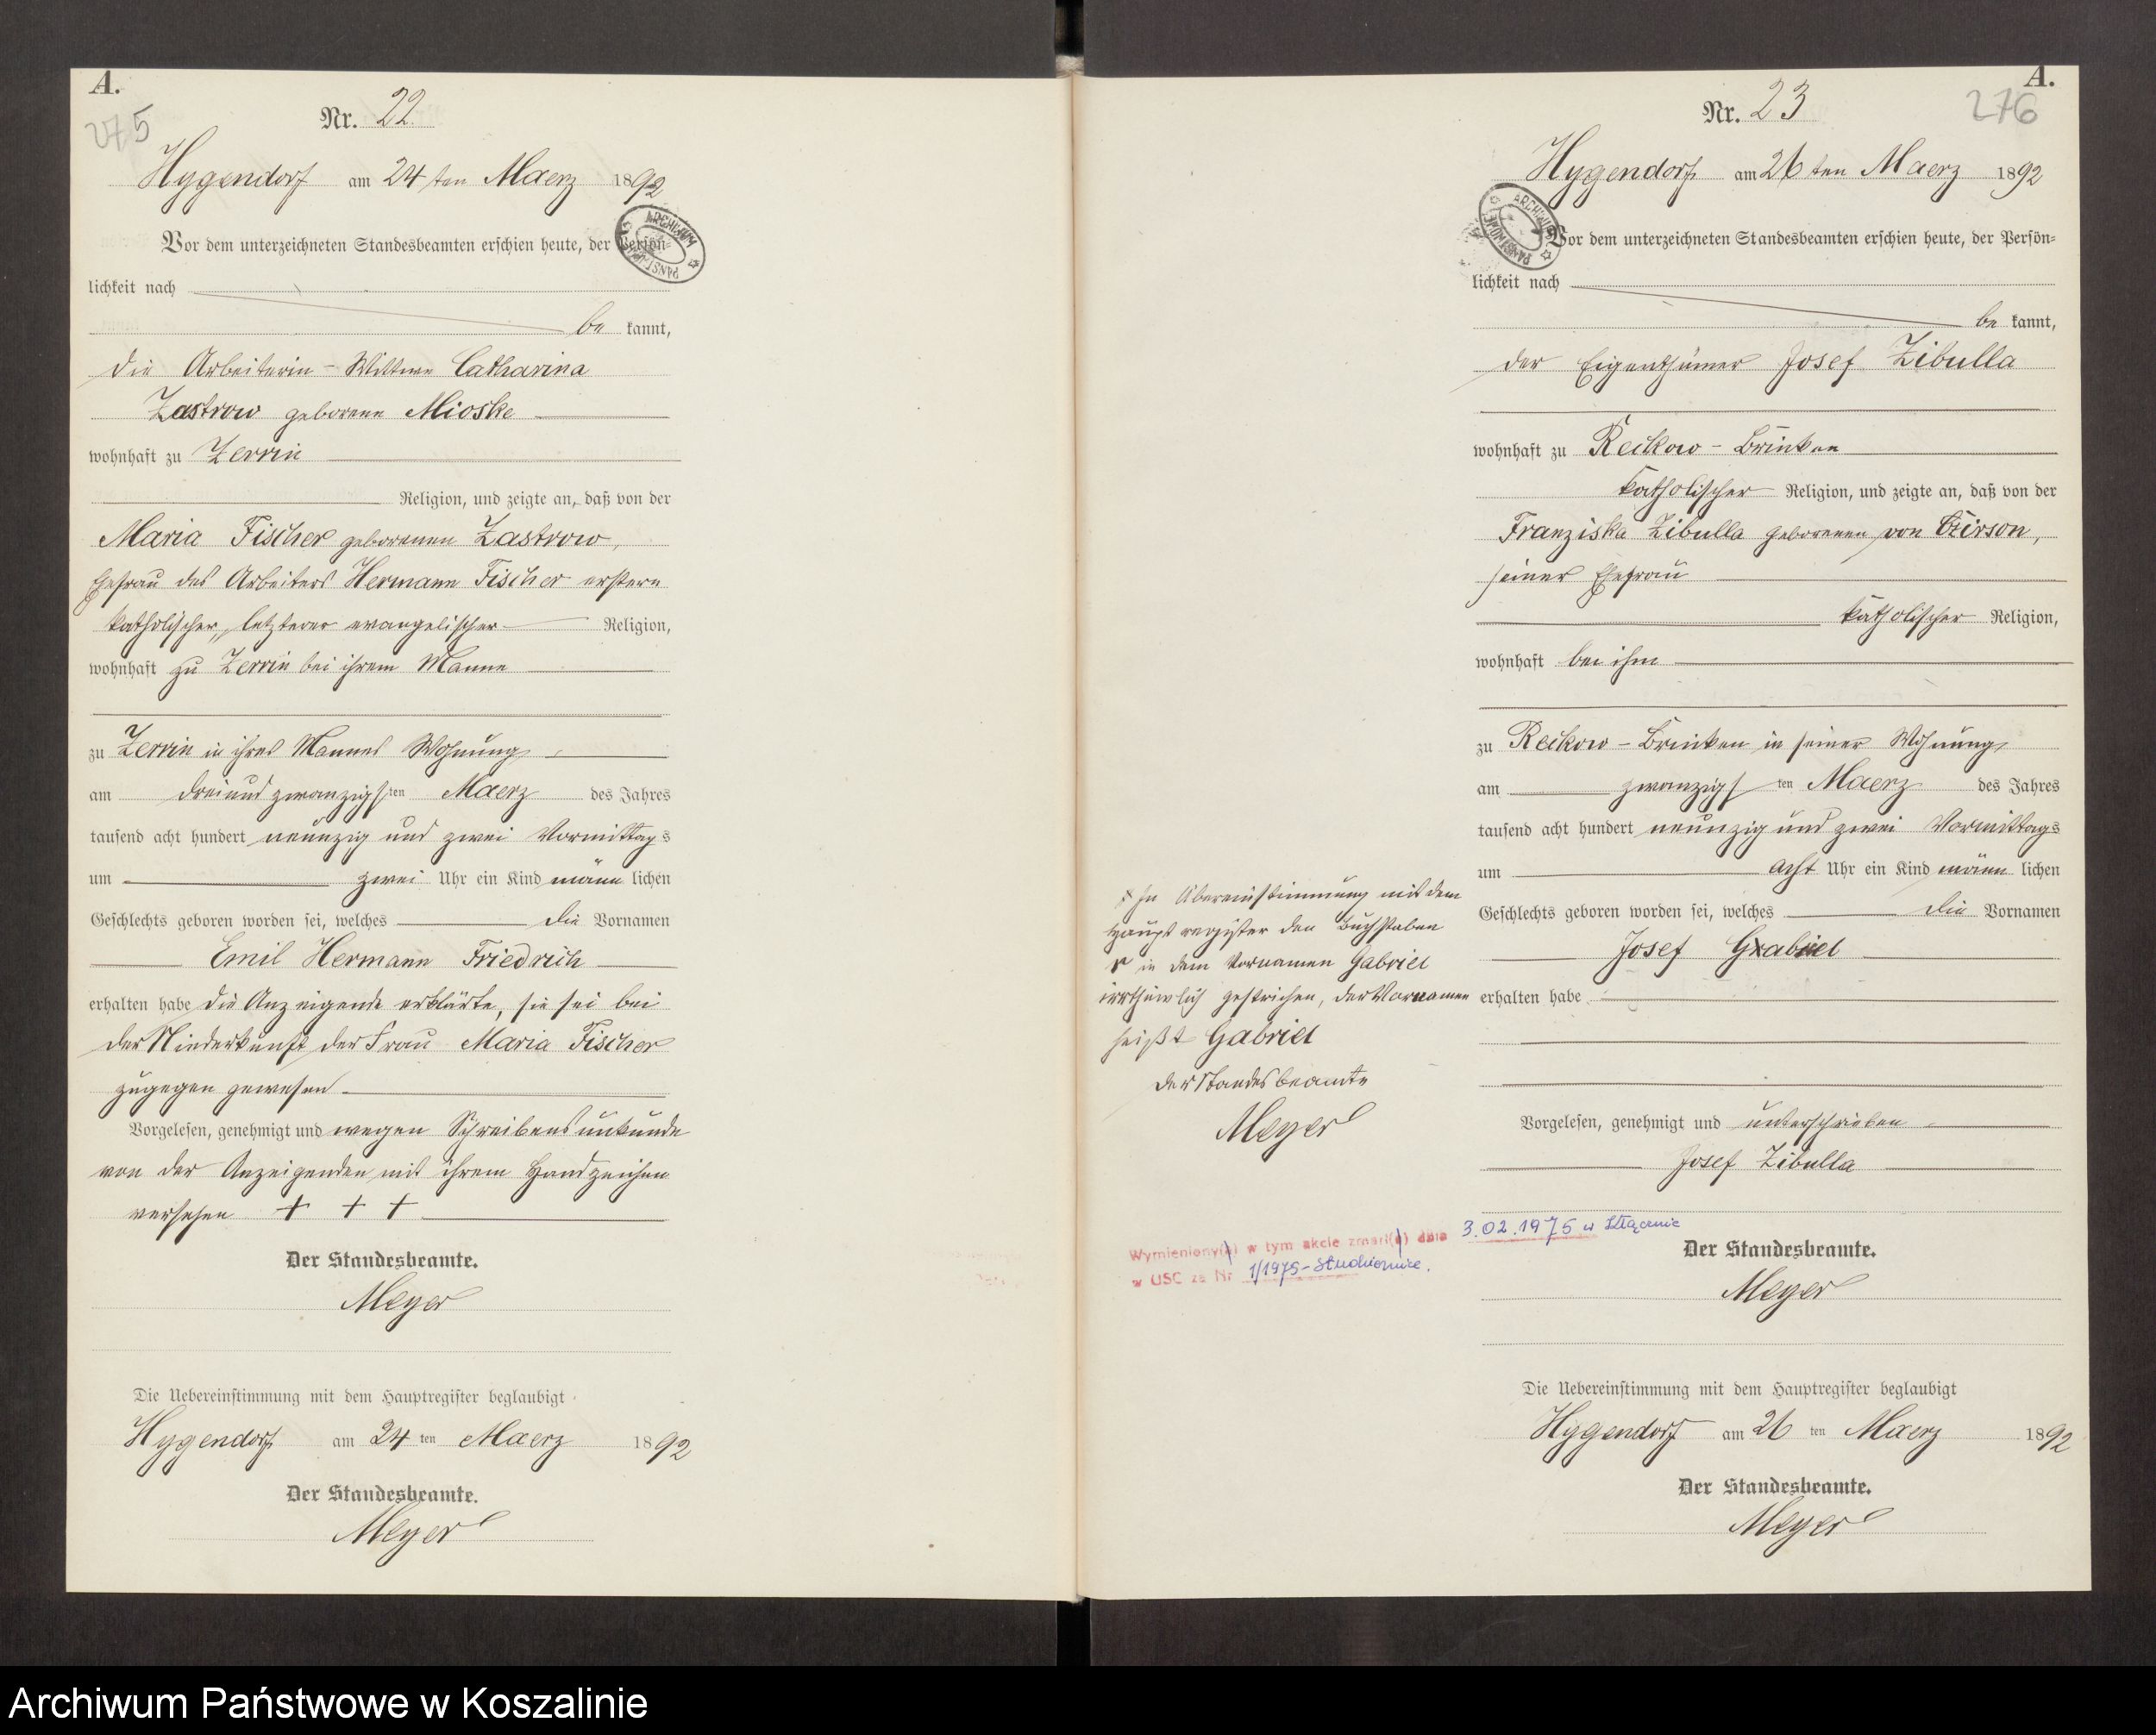 A.
275
Nr. 22
Hygendorf am 24ten Maerz 1892
Vor dem unterzeichneten Standesbeamten erschien heute, der Persön=
lichkeit nach
be kannt,
die Arbeiterin-Wittwe Catharina
Zastrow geborene Mioske
wohnhaft zu Zerrin
Religion, und zeigte an, daß von der
Maria Fischer geborenen Zastrow,
Ehefrau des Arbeiters Hermann Fischer erstere
katholischer, letzterer evangelischer Religion,
wohnhaft zu Zerrin bei ihrem Manne
zu Zerrin in ihres Mannes Wohnung
am dreiund zwanzigsten Maerz des Jahres
tausend acht hundert neunzig und zwei Vormittags
um zwei Uhr ein Kind männlichen
Geschlechts geboren worden sei, welches die Vornamen
Emil Hermann Friedrich
erhalten habe die Anzeigende erklärte, sie sei bei
der Niederkunft der Frau Maria Fischer
zugegen gewesen
Vorgelesen, genehmigt und wegen Schreibensunkunde
von der Anzeigenden mit ihrem Handzeichen
versehen + + +
Der Standesbeamte.
Meyer
Die Uebereinstimmung mit dem Hauptregister beglaubigt
Hygendorf am 24ten Maerz 1892
Der Standesbeamte.
Meyer
A.
276
Nr. 23
Hygendorf am 26ten Maerz 1892
ARCHIWUM PAŃSTWOWE
Vor dem unterzeichneten Standesbeamten erschien heute, der Persön=
lichkeit nach
be kannt,
der Eigenthümer Josef Zibulla
wohnhaft zu Reckow-Brinken
katholischer Religion, und zeigte an, daß von der
Franziska Zibulla geborenen von Czirson,
seiner Ehefrau
katholischer Religion,
wohnhaft bei ihm
zu Reckow-Brinken in seiner Wohnung
am zwanzigsten Maerz des Jahres
tausend acht hundert neunzig und zwei Vormittags
um acht Uhr ein Kind männlichen
Geschlechts geboren worden sei, welches die Vornamen
Josef Gabriel
erhalten habe
Vorgelesen, genehmigt und unterschrieben
Josef Zibulla
Der Standesbeamte.
Meyer
Die Uebereinstimmung mit dem Hauptregister beglaubigt
Hygendorf am 26ten Maerz 1892
Der Standesbeamte.
Meyer
In Übereinstimmung mit dem
Hauptregister den Buchstaben
r in dem Vornamen Gabriel
irrthümlich gestrichen, der Vornamen
heißt Gabriel
der Standesbeamte
Meyer
Wymieniony(a) w tym akcie zmarł(a) dnia 3.02.1975 w
w USC za Nr 1/1975-Studzienice.
Archiwum Państwowe w Koszalinie